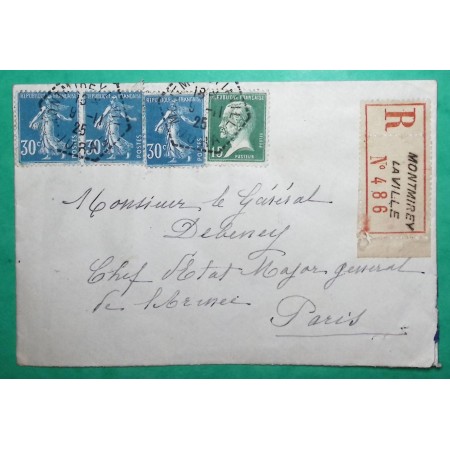 REPUBLIQUE FRANÇAISE
30c POSTES
REPUBLIQUE FRANÇAISE
30c POSTES
REPUBLIQUE FRANÇAISE
30c POSTES
REPUBLIQUE FRANÇAISE
15c PASTEUR POSTES
25
25
R
MONTMIREY
LA VILLE
No 486
Monsieur le Général
Debeney
Chef d'Etat Major general
de l'Armee
Paris